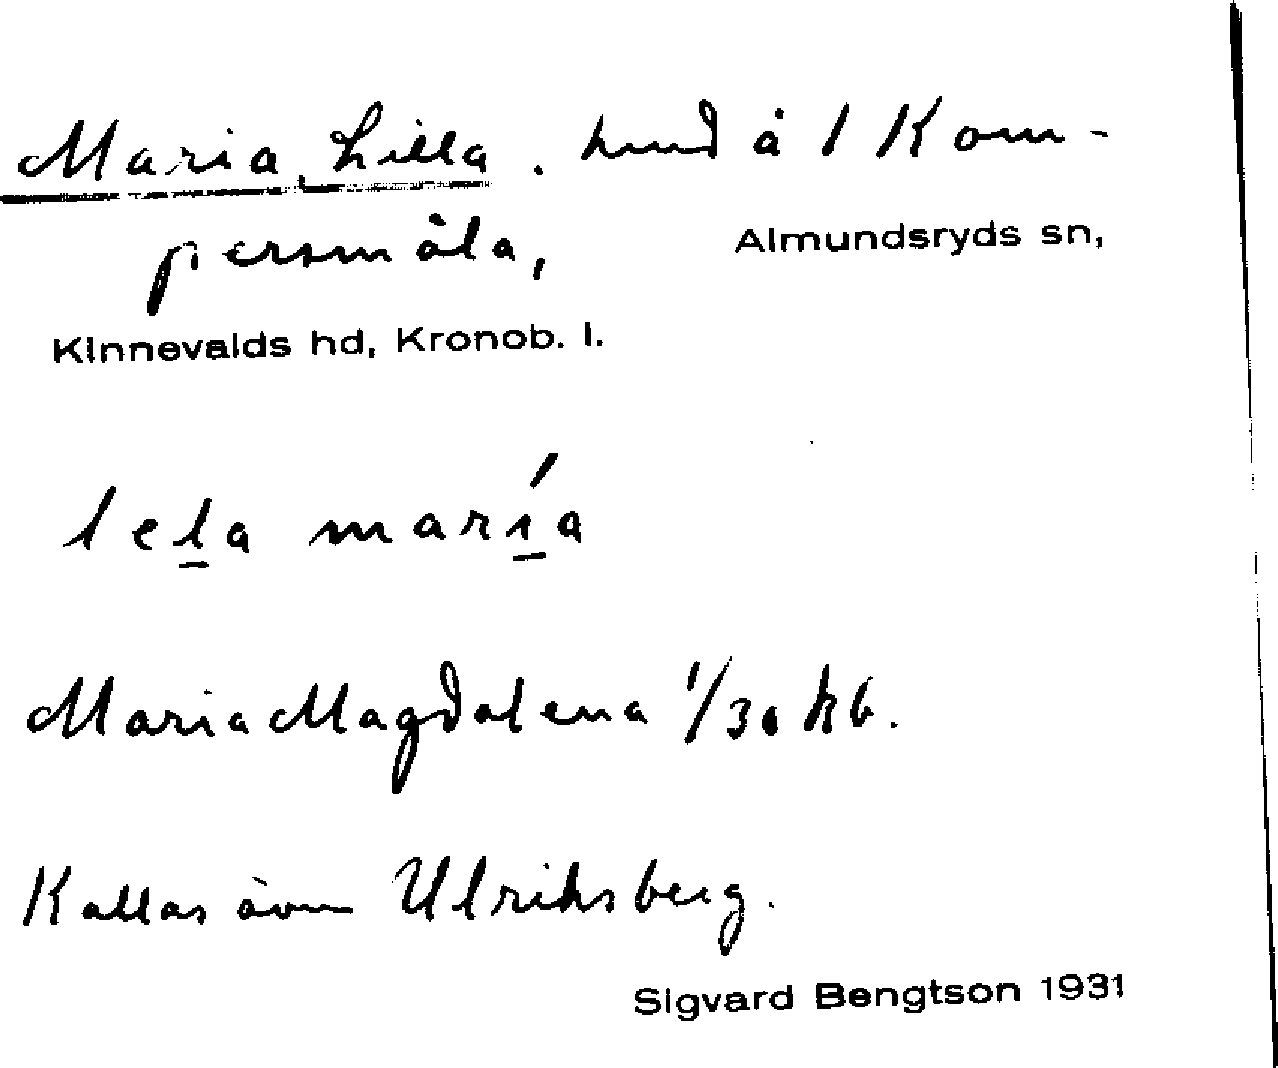 Maria, Lilla. hmd å 1 Kom-
persmåla,
Almundsryds sn,
Kinnevalds hd, Kronob. l.
lela maría
Maria Magdalena 1/30 kb.
Kallas även Ulriksberg.
Sigvard Bengtson 1931